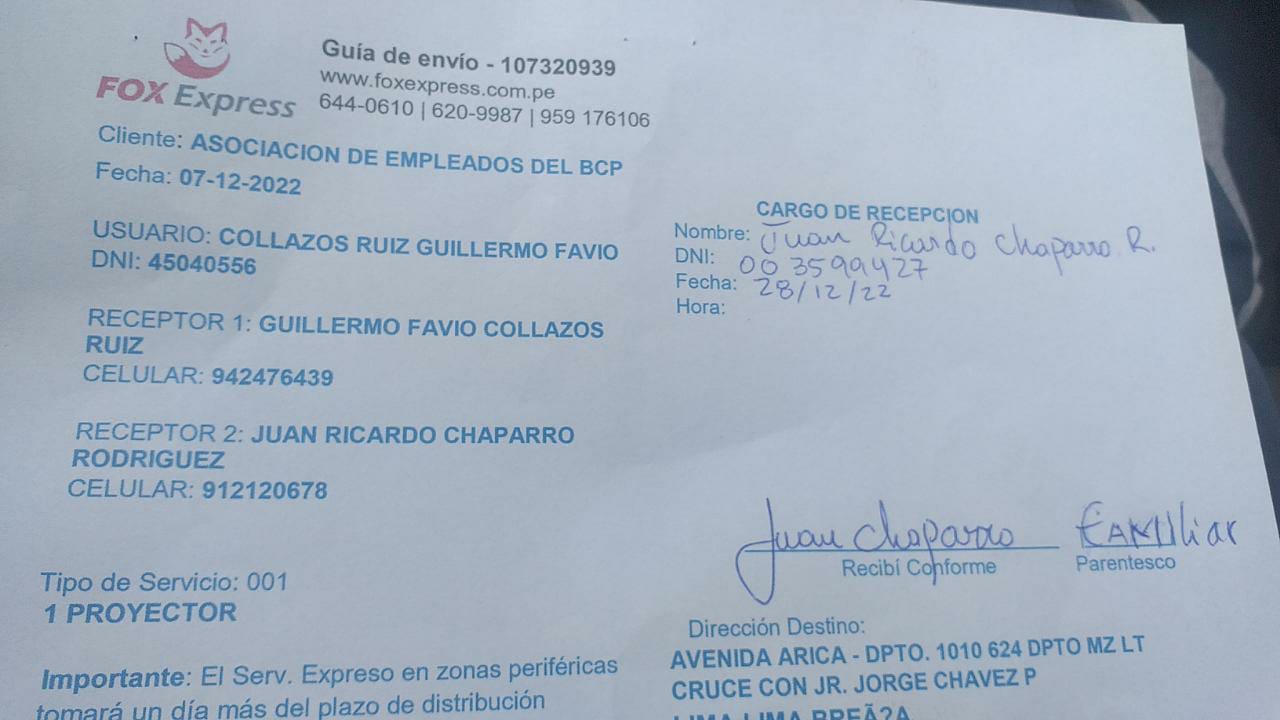 FOX Express
Guía de envío - 107320939
www.foxexpress.com.pe
644-0610 | 620-9987 | 959 176106
Cliente: ASOCIACION DE EMPLEADOS DEL BCP
Fecha: 07-12-2022
USUARIO: COLLAZOS RUIZ GUILLERMO FAVIO
DNI: 45040556
RECEPTOR 1: GUILLERMO FAVIO COLLAZOS
RUIZ
CELULAR: 942476439
RECEPTOR 2: JUAN RICARDO CHAPARRO
RODRIGUEZ
CELULAR: 912120678
CARGO DE RECEPCION
Nombre: Juan Ricardo Chaparro R.
DNI: 003599427
Fecha: 28/12/22
Hora:
Juan Chaparro FAMILiar
Recibí Conforme Parentesco
Tipo de Servicio: 001
1 PROYECTOR
Importante: El Serv. Expreso en zonas periféricas
tomará un día más del plazo de distribución
Dirección Destino:
AVENIDA ARICA - DPTO. 1010 624 DPTO MZ LT
CRUCE CON JR. JORGE CHAVEZ P
LIMA LIMA BREÃ?A